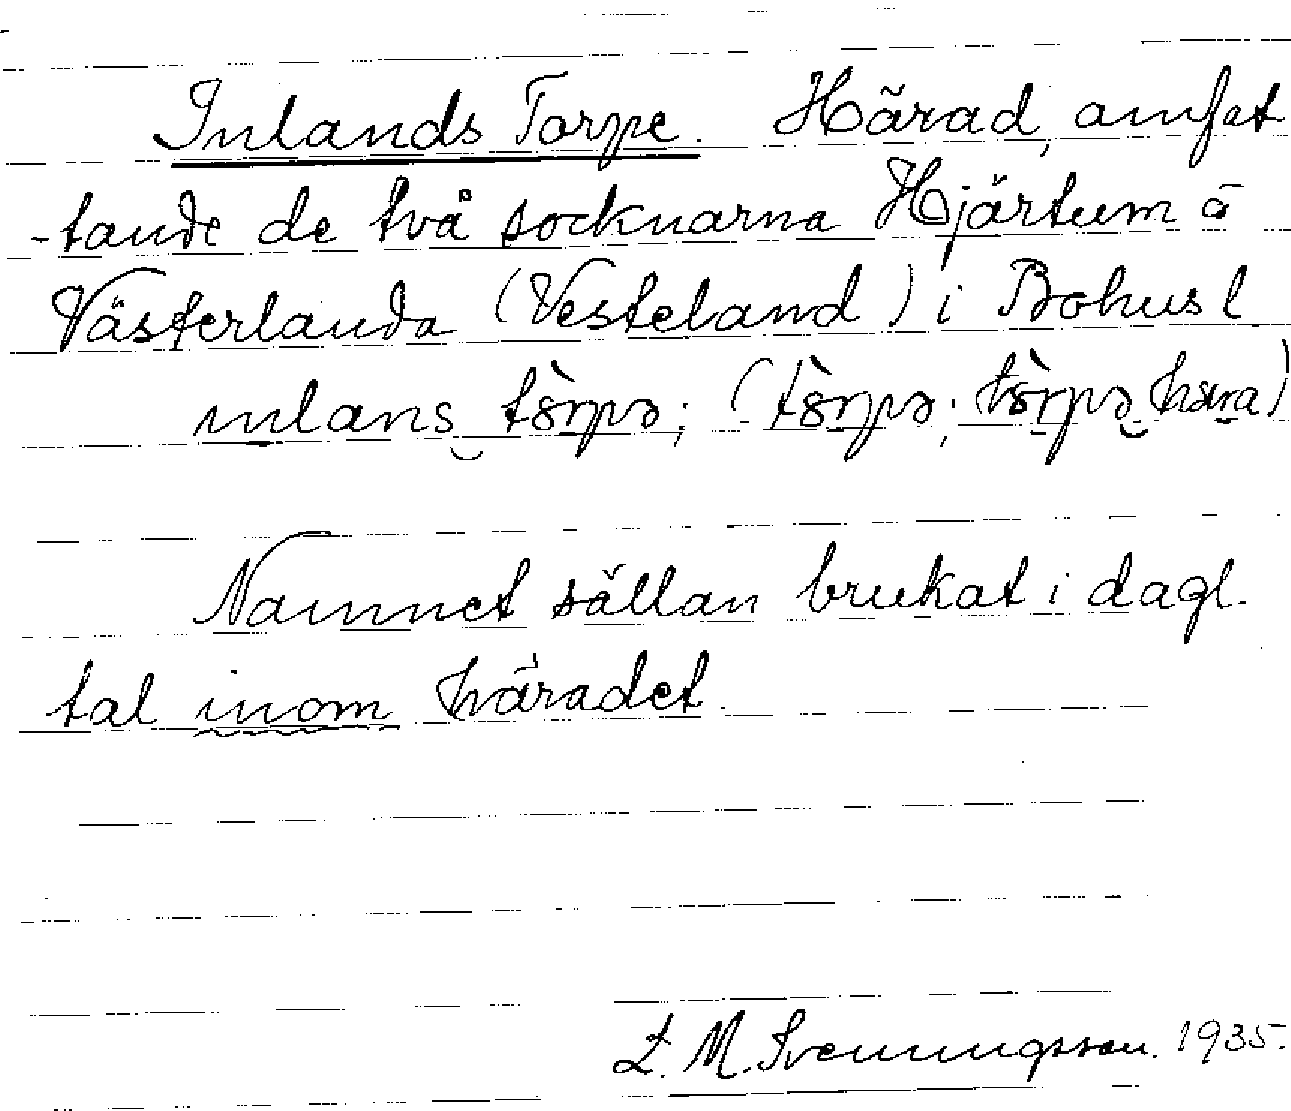 Inlands Torpe. Härad, omfat
-tande de två socknarna Hjärtum å
Västerlanda (Vesteland) i Bohusl
inlans tòrpə; (tòrpə; tòrpə hæra)
Namnet sällan brukat i dagl.
tal inom häradet.
L. M. Svenningsson. 1935.